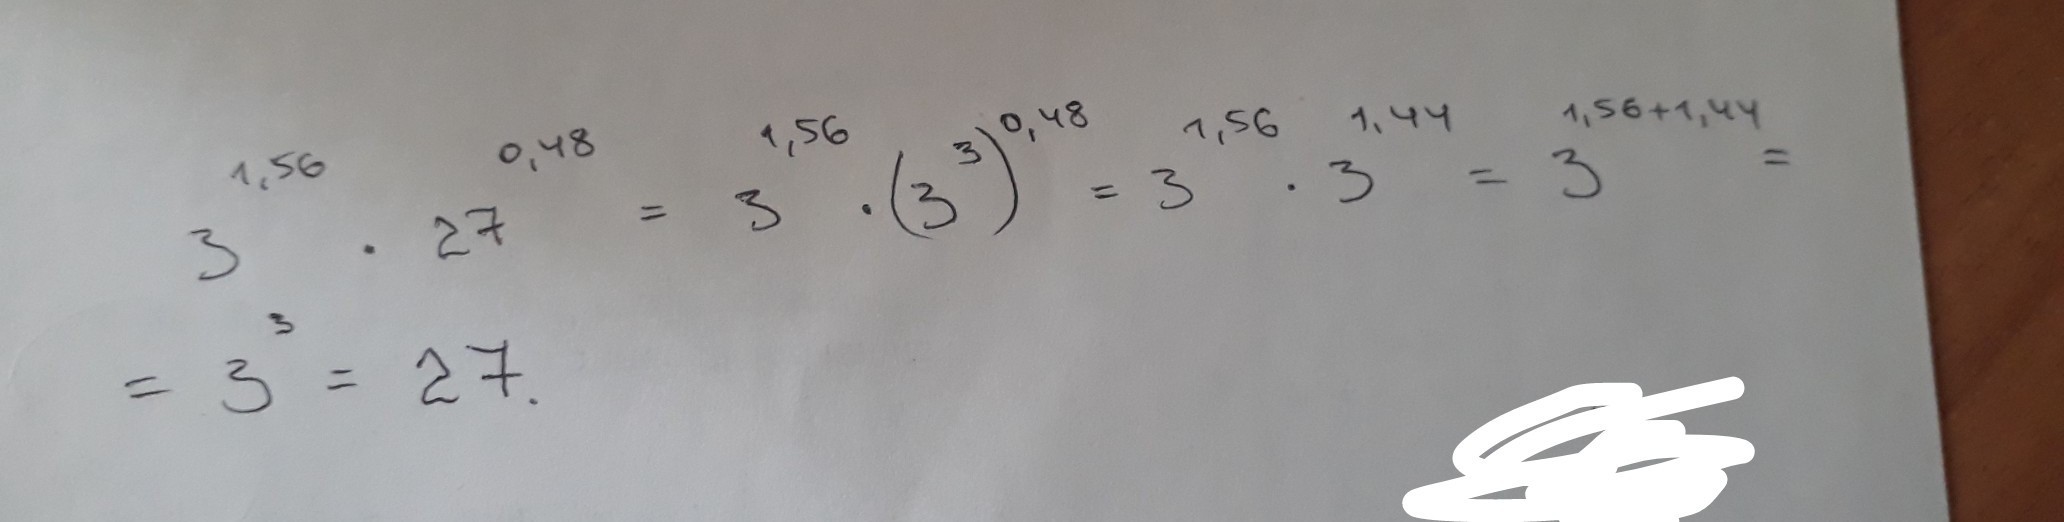 3^{1,56} · 27^{0,48} = 3^{1,56} · (3^3)^{0,48} = 3^{1,56} · 3^{1,44} = 3^{1,56+1,44} =
= 3^3 = 27.